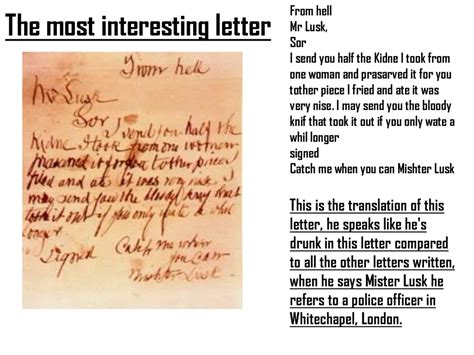 The most interesting letter
From hell
Mr Lusk
Sor
I send you half the
Kidne I took from one women
prasarved it for you tother piece I
fried and ate it was very nise. I
may send you the bloody knif that
took it out if you only wate a whil
longer.
signed
Catch me when
you can
Mishter Lusk.
From hell
Mr Lusk,
Sor
I send you half the Kidne I took from
one woman and prasarved it for you
tother piece I fried and ate it was
very nise. I may send you the bloody
knif that took it out if you only wate a
whil longer
signed
Catch me when you can Mishter Lusk
This is the translation of this
letter, he speaks like he's
drunk in this letter compared
to all the other letters written,
when he says Mister Lusk he
refers to a police officer in
Whitechapel, London.